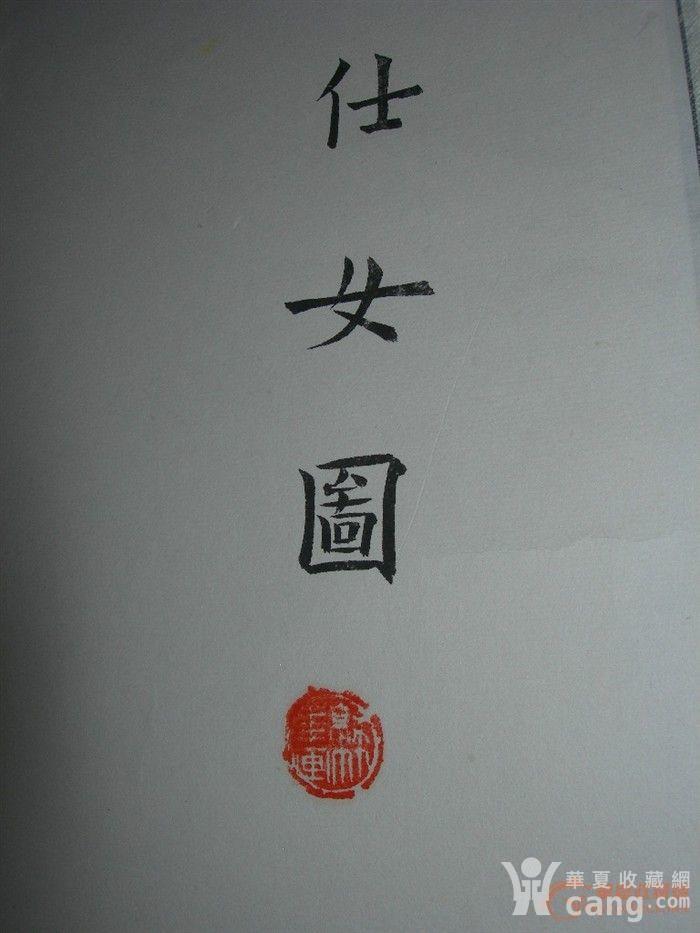 仕
女
圖
華夏收藏網
cang.com